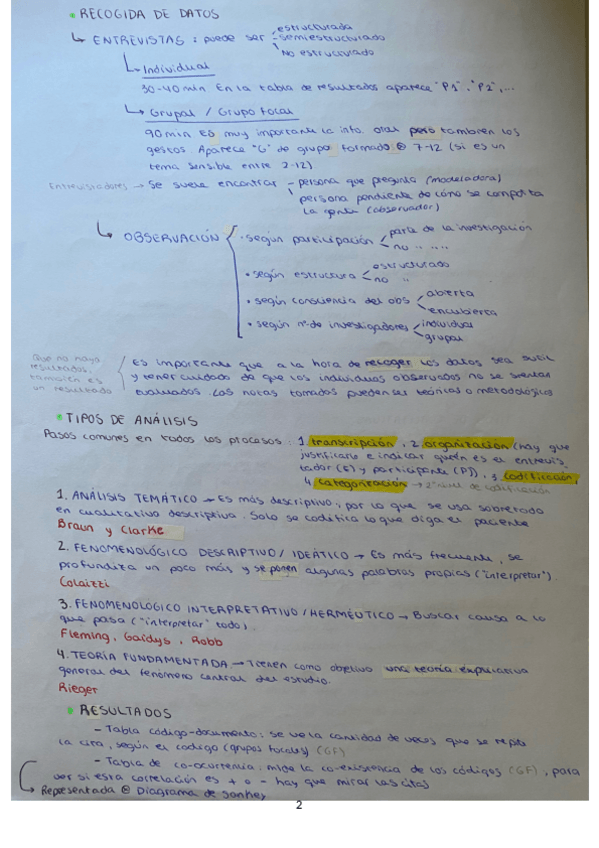 • RECOGIDA DE DATOS
↳ ENTREVISTAS : puede ser estructurada
semiestructurado
NO estructurado
↳ Individual
30-40 min En la tabla de resultados aparece "P1", "P2", ...
↳ Grupal / Grupo focal
90 min es muy importante la info. oral pero también los
gestos. Aparece "G" de grupo formado 7-12 (si es un
tema sensible entre 2-12)
Entrevistadores → Se suele encontrar - persona que pregunta (modeladora)
persona pendiente de cómo se comporta
la gente (observador)
↳ OBSERVACIÓN
• según participación < parte de la investigación
no " " "
• según estructura < estructurado
no "
• según consciencia del obs < abierta
encubierta
• según nº de investigadores < individual
grupal
Que no haya
resultados,
también es
un resultado
Es importante que a la hora de recoger los datos sea sutil
y tener cuidado de que los individuos observados no se sientan
evaluados. Las notas tomadas pueden ser teóricas o metodológicas
• TIPOS DE ANÁLISIS
Pasos comunes en todos los procesos: 1 transcripción, 2. organización (hay que
justificarlo e indicar quién es el entrevis,
tador (E) y participante (P)), 3 codificación,
4 categorización → 2º nivel de codificación
1. ANÁLISIS TEMÁTICO → Es más descriptivo, por lo que se usa sobretodo
en cualitativo descriptivo. Solo se codifica lo que diga el paciente
Braun y Clarke
2. FENOMENOLÓGICO DESCRIPTIVO / IDEÁTICO → Es más frecuente, se
profundiza un poco más y se ponen algunas palabras propias ("interpretar").
Colaizzi
3. FENOMENOLOGICO INTERPRETATIVO / HERMÉUTICO → Buscar causa a lo
que pasa ("interpretar" todo).
Fleming, Gaidys, Robb
4. TEORÍA FUNDAMENTADA → Tienen como objetivo una teoría explicativa
general del fenómeno central del estudio.
Rieger
• RESULTADOS
- Tabla código-documento: se ve la cantidad de veces que se repite
la cita, según el codigo (grupos focales) (GF)
- Tabla de co-ocurrencia: mide la co-existencia de los códigos (GF), para
ver si esta correlación es + o - hay que mirar las citas
→ Representada Diagrama de Sankey
2